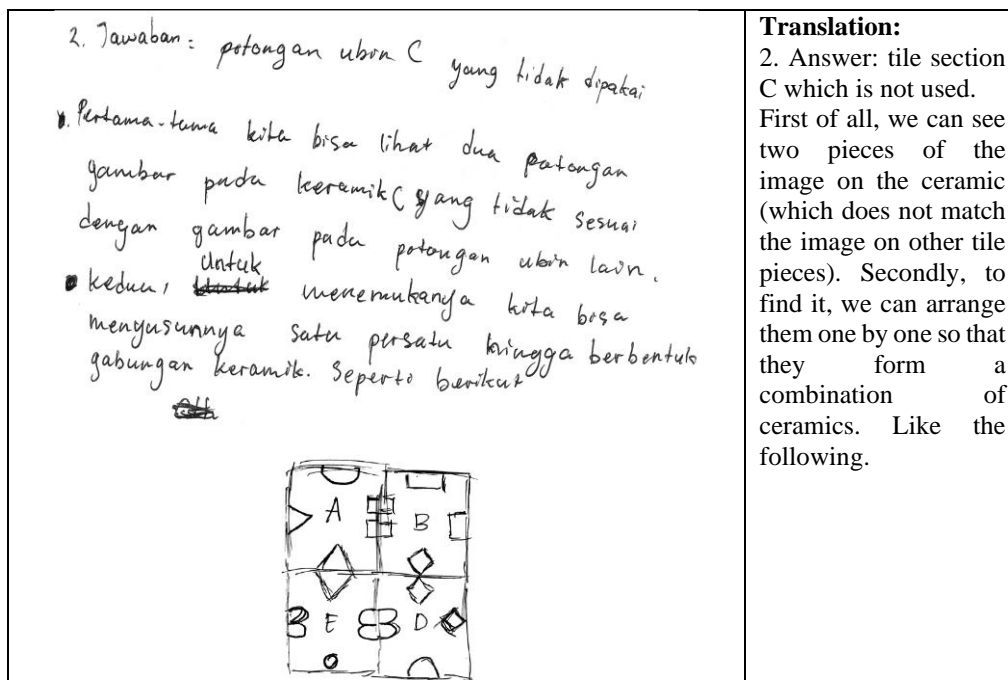 2. Jawaban: potongan ubin C yang tidak dipakai
Pertama-tama kita bisa lihat dua potongan
gambar pada keramik C yang tidak sesuai
dengan gambar pada potongan ubin lain.
Untuk
kedua, menemukanya kita bisa
mengusunnya satu persatu hingga berbentuk
gabungan keramik. Seperti berikut
A
B
E
D
Translation:
2. Answer: tile section
C which is not used.
First of all, we can see
two pieces of the
image on the ceramic
(which does not match
the image on other tile
pieces). Secondly, to
find it, we can arrange
them one by one so that
they form a
combination of
ceramics. Like the
following.